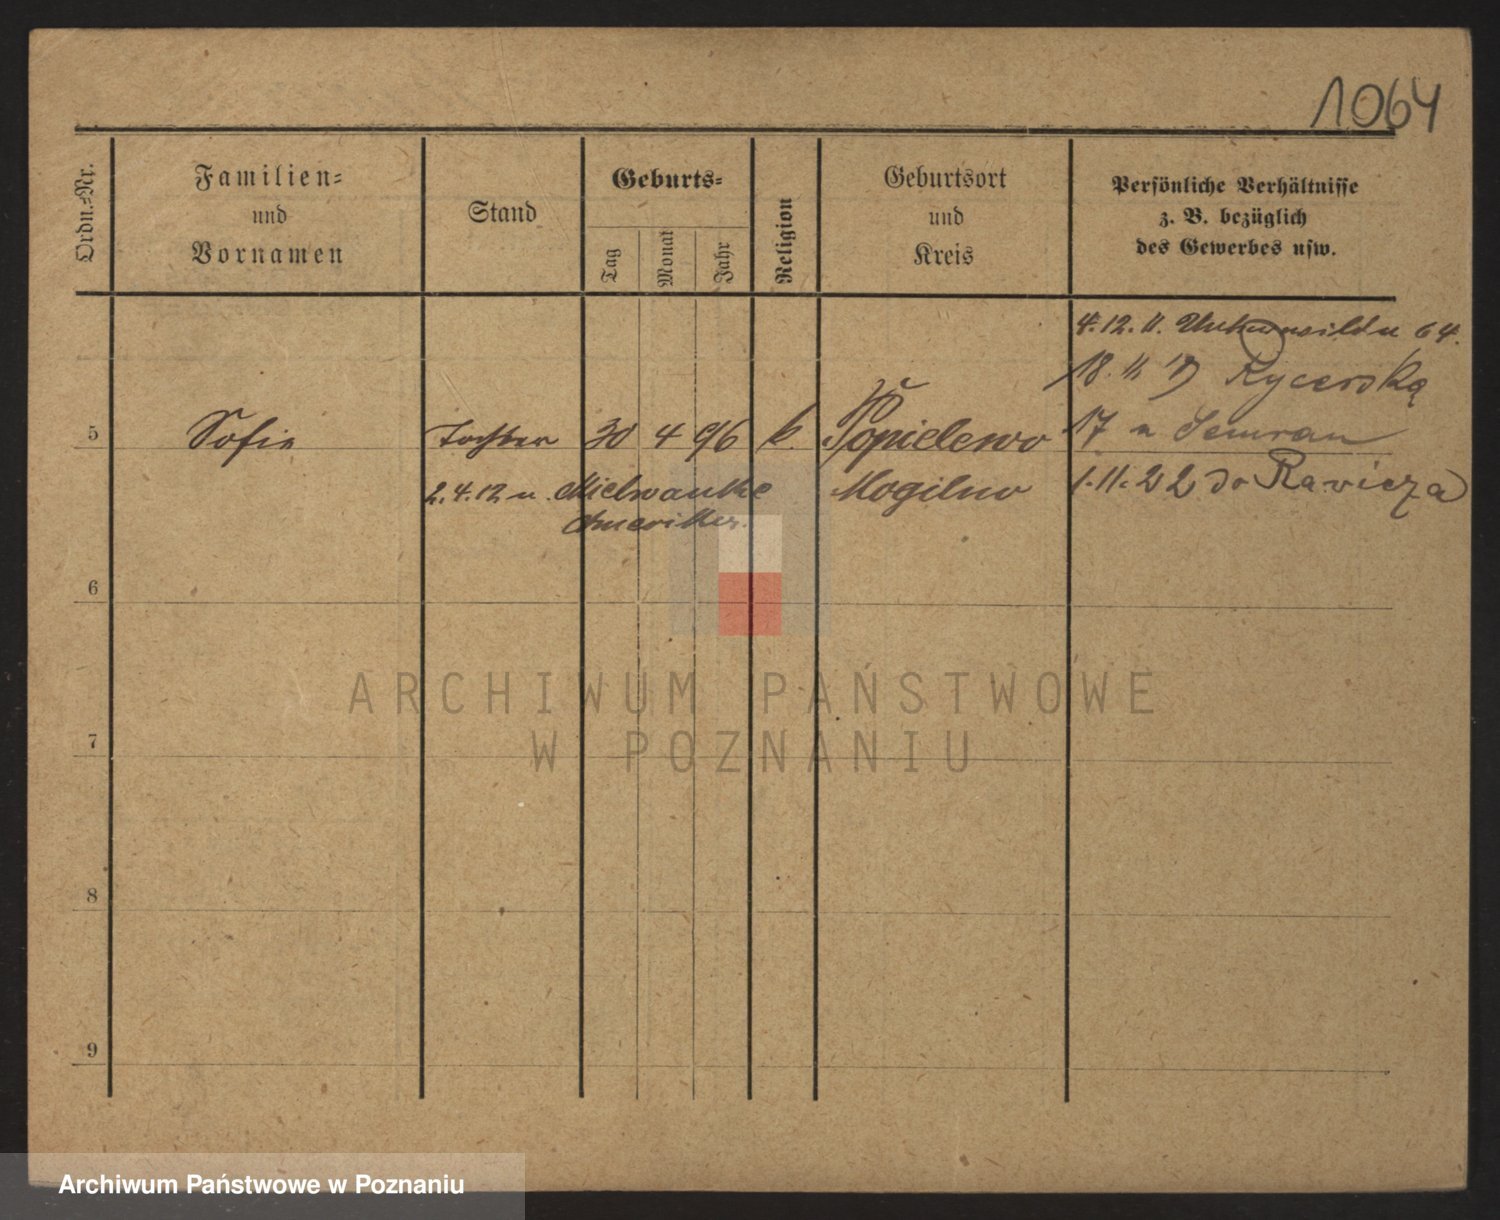 1064
Ordn.-Nr.
Familien-
und
Vornamen
Stand
Geburts-
Tag
Monat
Jahr
Religion
Geburtsort
und
Kreis
Persönliche Verhältnisse
z. B. bezüglich
des Gewerbes usw.
4.12.11. 64.
18. 11 19 Rycerską
5 Sofie Tochter 30 4 96 k. Popielewo 17 n
2.4.12 n. Mielwaukee Mogilno 1.11.22 do Ravicza
Amerika.
6
7
8
9
ARCHIWUM PAŃSTWOWE
W POZNANIU
Archiwum Państwowe w Poznaniu